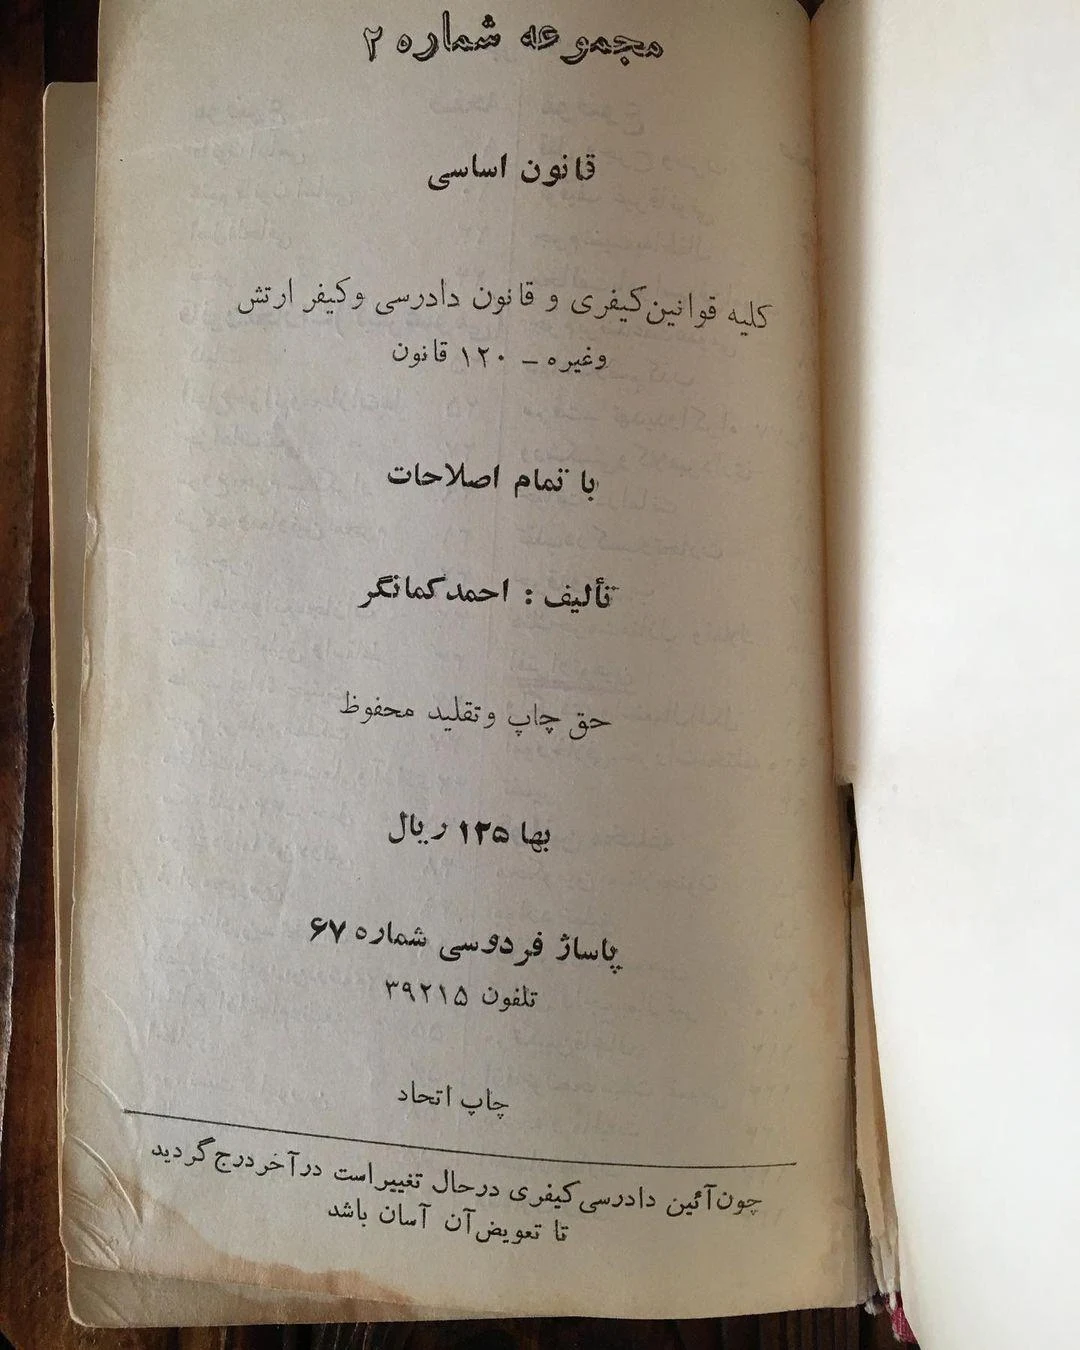 مجموعه شماره ۲
قانون اساسی
کلیه قوانین کیفری و قانون دادرسی و کیفر ارتش
وغیره – ۱۲۰ قانون
با تمام اصلاحات
تألیف : احمد کمانگر
حق چاپ و تقلید محفوظ
بها ۱۲۵ ریال
پاساژ فردوسی شماره ۶۷
تلفون ۳۹۲۱۵
چاپ اتحاد
چون آئین دادرسی کیفری در حال تغییر است در آخر درج گردید
تا تعویض آن آسان باشد